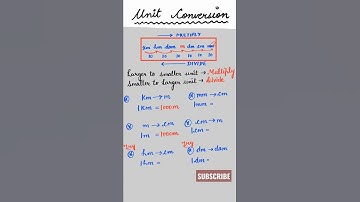 Unit Conversion
→ MULTIPLY
km hm dam m dm cm mm
10 10 10 10 10 10
← DIVIDE
Larger to smaller unit → Multiply
Smaller to larger unit → divide
km → m
1Km = 1000m
mm → cm
1mm =
m → cm
1m = 100cm
cm → m
1cm =
hm → cm
1hm =
dm → dam
1dm =
SUBSCRIBE